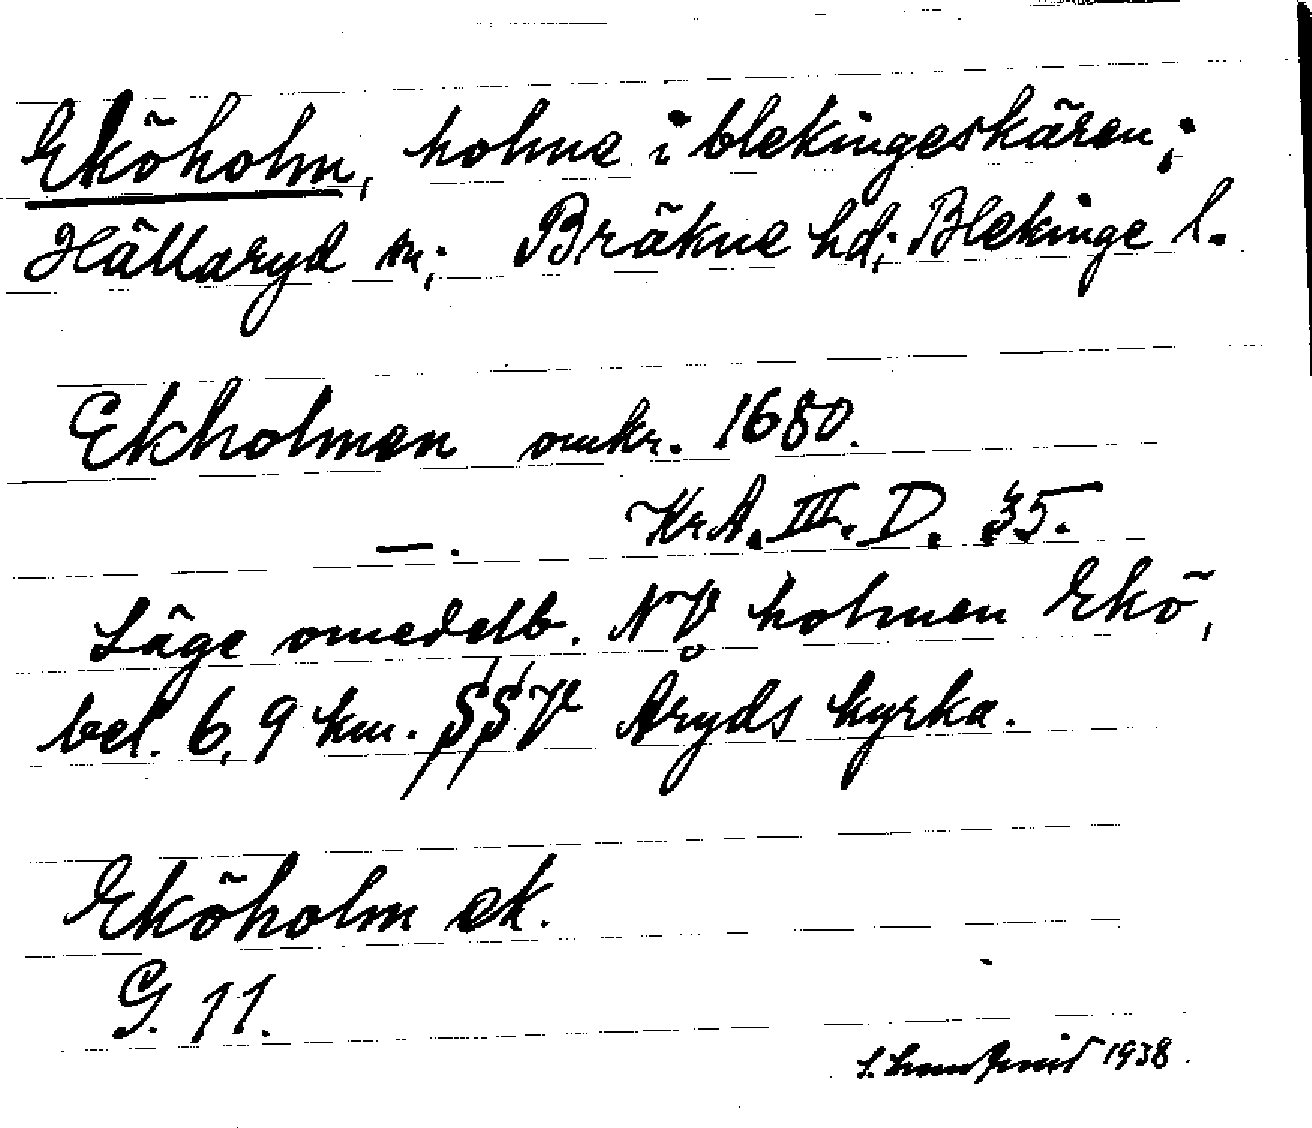 Eköholm, holme i blekingeskären;
Hällaryd sn; Bräkne hd; Blekinge l.
Ekholmen omkr. 1680.
—. KrA. III. D. 35.
Läge omedelb. NV holmen Ekö,
bel. 6,9 km. SSV Aryds kyrka.
Eköholm ek.
G. 11.
1938